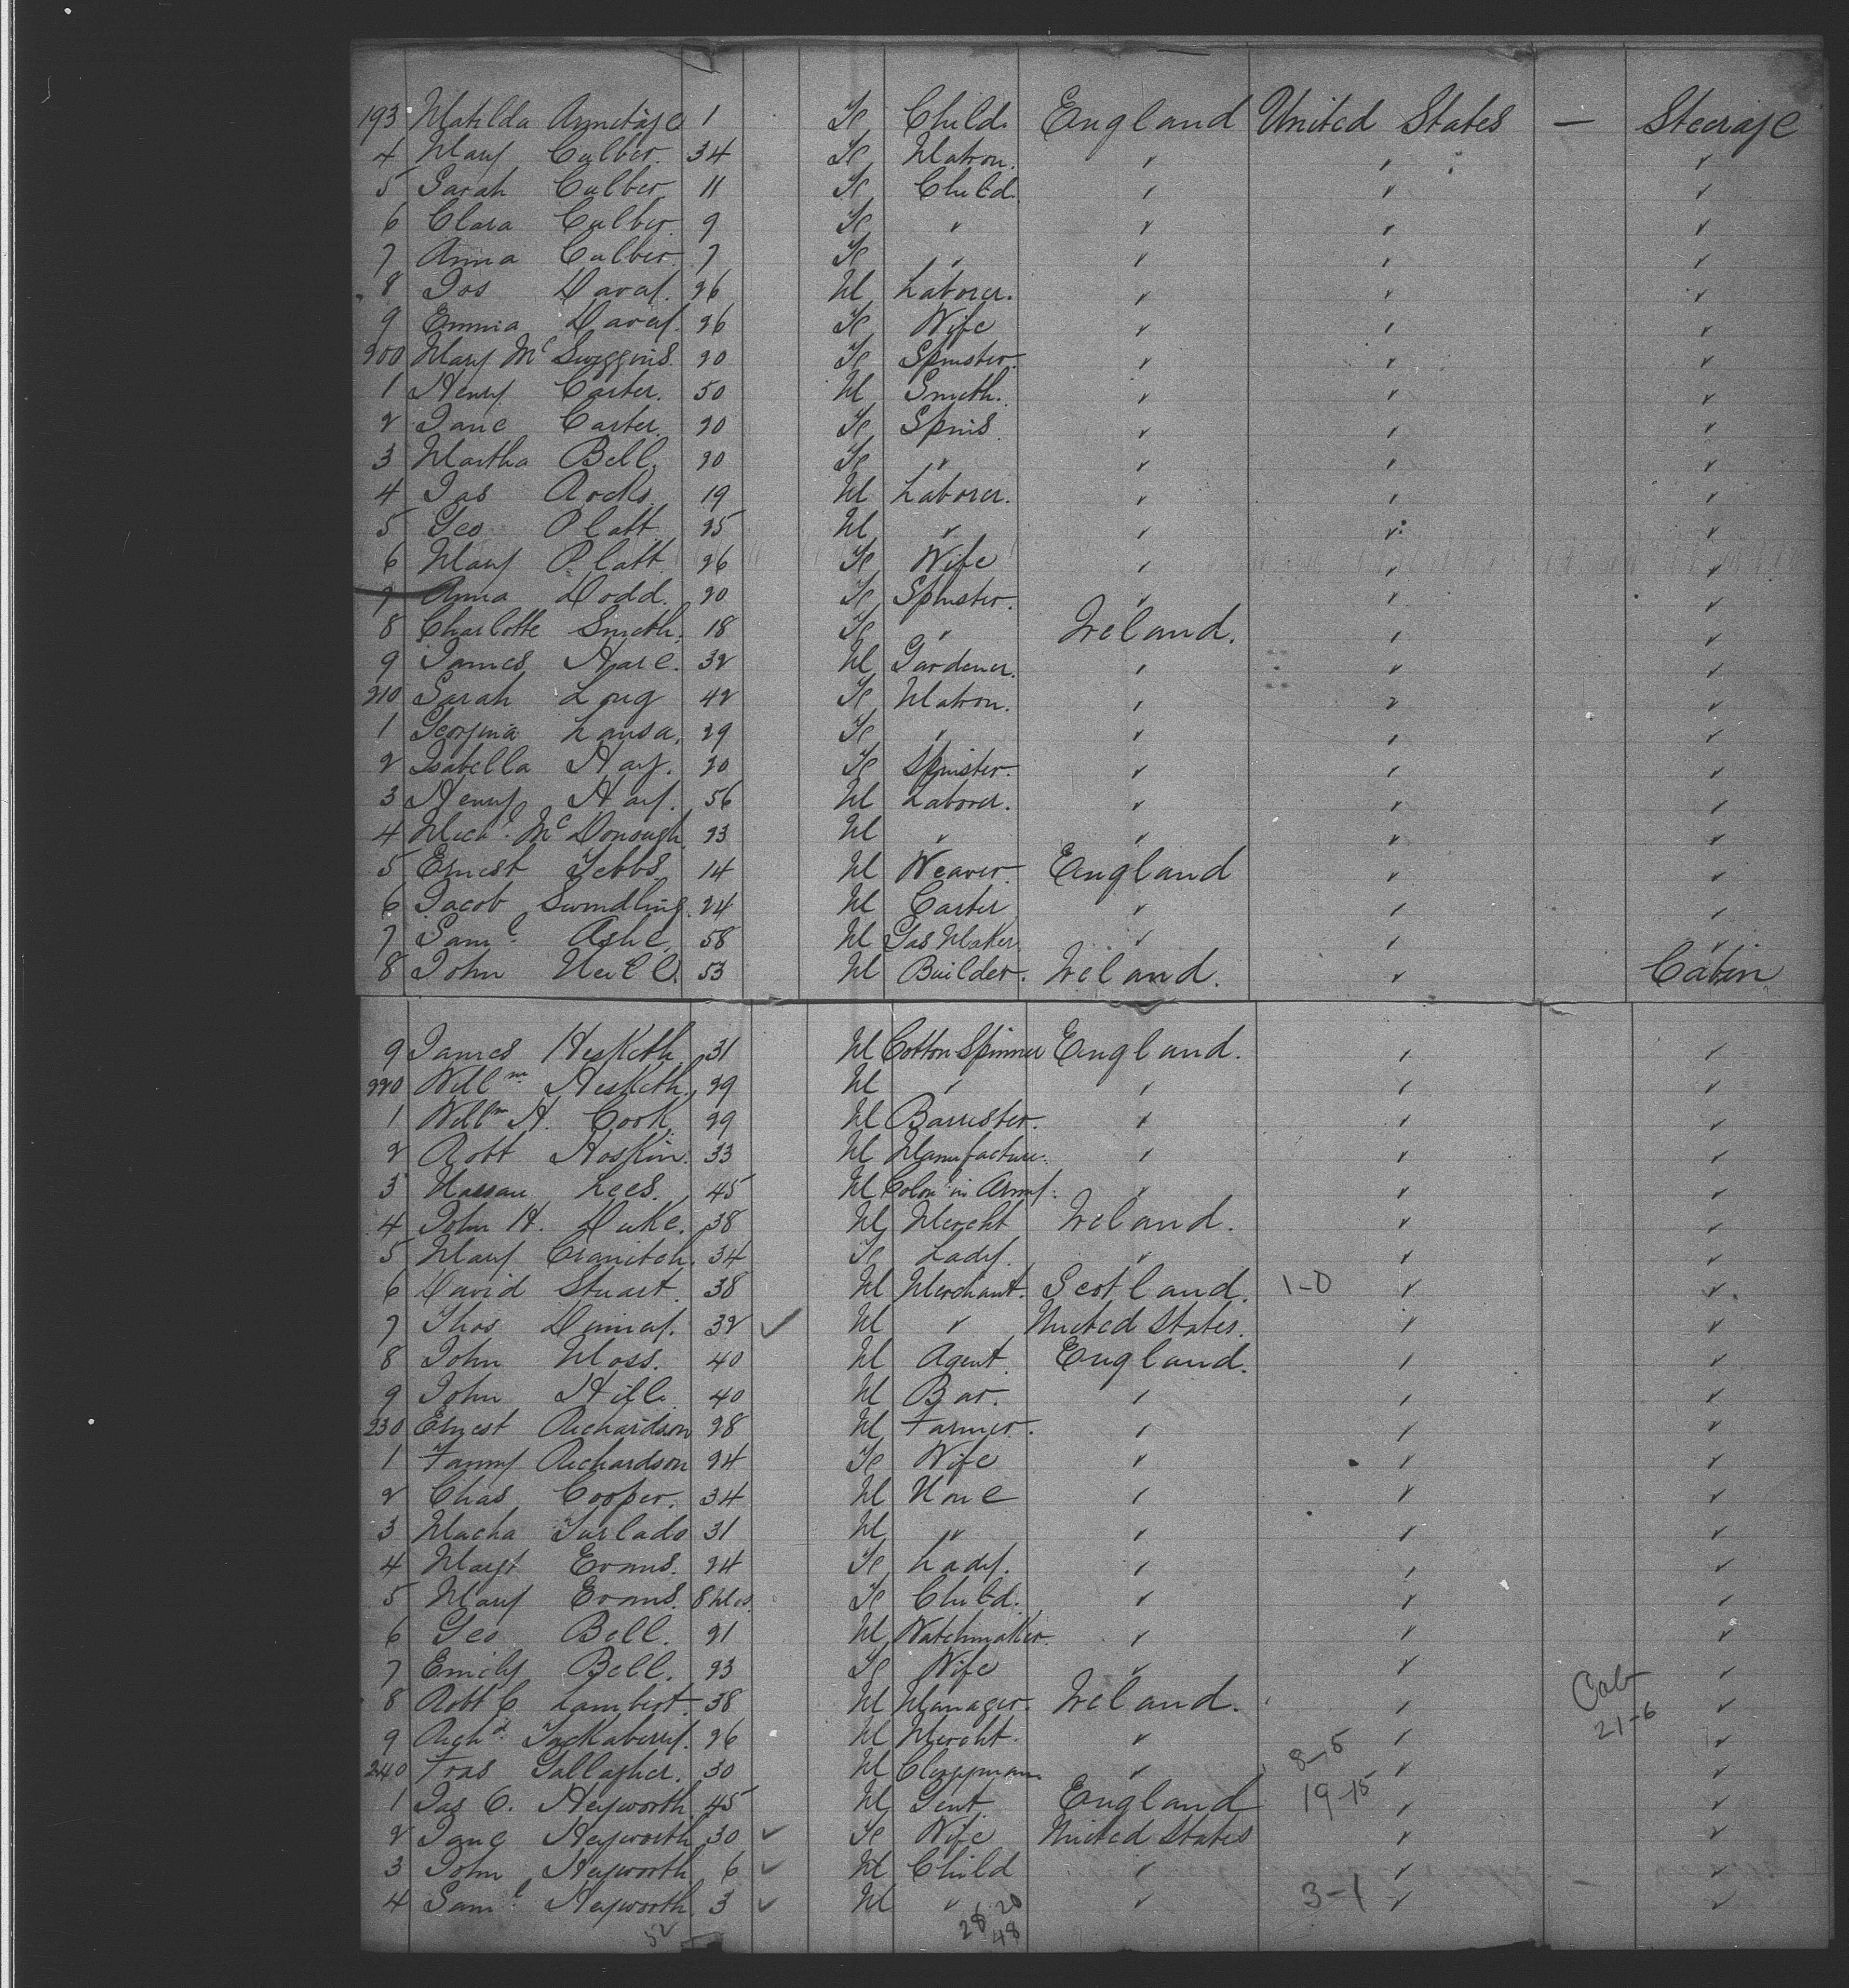 193 Matilda Armitage 1 Fe Child England United States — Steerage
4 Mary Culber. 34 Fe Matron. " " "
5 Sarah Culber 11 Fe Child. " " "
6 Clara Culber. 9 Fe " " " "
7 Anna Culber 7 Fe " " " "
8 Jos Davy. 26 M Laborer. " " "
9 Emma Davy. 26 Fe Wife " " "
200 Mary McSwiggins. 20 Fe Spinster. " " "
1 Henry Carter. 50 M Smith. " " "
2 Jane Carter. 20 Fe Spins. " " "
3 Martha Bell. 20 Fe " " " "
4 Jas Rocks. 19 M Laborer. " " "
5 Geo Platt. 25 M " " " "
6 Mary Platt. 26 Fe Wife " " "
7 Anna Dodd. 20 Fe Spinster. " " "
8 Charlotte Smith. 18 Fe " Ireland. " "
9 James Hare. 32 M Gardener. " " "
210 Sarah Long 42 Fe Matron. " " "
1 Georgina 29 Fe " " " "
2 Isabella Hay. 20 Fe Spinster. " " "
3 Henry Hay. 56 M Laborer. " " "
4 Michl. McDonough. 23 M " " " "
5 Ernest Tebbs. 14 M Weaver. England " "
6 Jacob Swindling. 24 M Carter " " "
7 Saml. Ashe 58 M Gas Maker. " " "
8 John Neill. 53 M Builder. Ireland. " Cabin
9 James Hesketh. 31 M Cotton Spinner England. " "
220 Willm Hesketh. 29 M " " " "
1 Willm H. Cook. 29 M Barrister. " " "
2 Robt Hoskin. 33 M Manufacture. " " "
3 Nassau Lees. 45 M Colonl in Army. " " "
4 John H. Duke. 38 M Mercht Ireland. " "
5 Mary Cranitch. 34 Fe Lady. " " "
6 David Stuart. 38 M Merchant. Scotland. 1-0 " "
7 Thos 32 ✓ M " United States. " "
8 John Moss. 40 M Agent. England. " "
9 John Hill. 40 M Bar. " " "
230 Ernest Richardson 28 M Farmer. " " "
1 Fanny Richardson 24 Fe Wife " " "
2 Chas Cooper. 34 M None " " "
3 Macha Furlado 31 M " " " "
4 Margt Evans. 24 Fe Lady. " " "
5 Mary Evans. 8 Mos. Fe Child. " " "
6 Geo Bell. 21 M Watchmaker. " " "
7 Emily Bell. 23 Fe Wife " " "
8 Robt C. Lambert. 38 M Manager. Ireland. " Cab "
21-6
9 Richd. Tackaberry. 26 M Mercht. " " "
240 Fras Gallagher. 30 M Clergyman. " 8-5 " "
1 Jas C. Heyworth 45 M Gent. England 19-15 " "
2 Jane Heyworth 30 ✓ Fe Wife United States " "
3 John Heyworth 6 ✓ M Child " " "
4 Saml. Heyworth. 3 ✓ M " " 3-1 " "
52 28 20
48